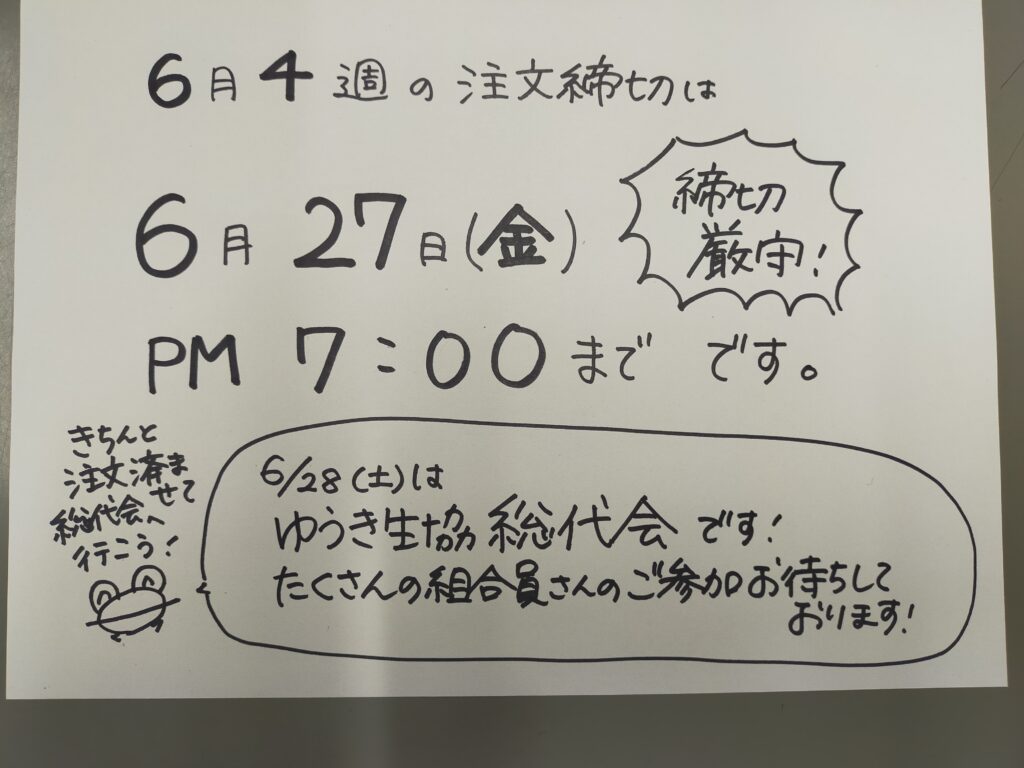 6月4週の注文締切は
6月27日(金)
PM 7:00まで です。
締切
厳守!
きちんと
注文済ま
せて
総代会へ
行こう!
6/28(土)は
ゆうき生協総代会です!
たくさんの組合員さんのご参加お待ちして
おります!